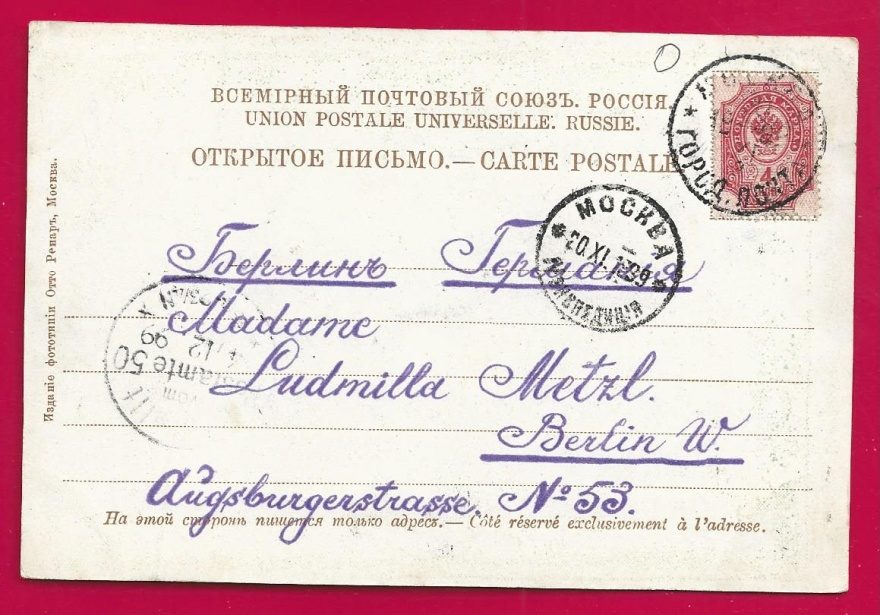 ВСЕМІРНЫЙ ПОЧТОВЫЙ СОЮЗЪ. РОССІЯ.
UNION POSTALE UNIVERSELLE. RUSSIE.
ОТКРЫТОЕ ПИСЬМО.—CARTE POSTALE
ГОРОД. ПОЧТА
4
МОСКВА
20.XI.1899
Берлинъ Германія
Madame
Ludmilla Metzl.
Berlin W.
Augsburgerstrasse. No 53.
12
99
vom
amte 50
На этой сторонѣ пишется только адресъ.—Côté réservé exclusivement à l'adresse.
Изданіе фототипіи Отто Ренаръ, Москва.